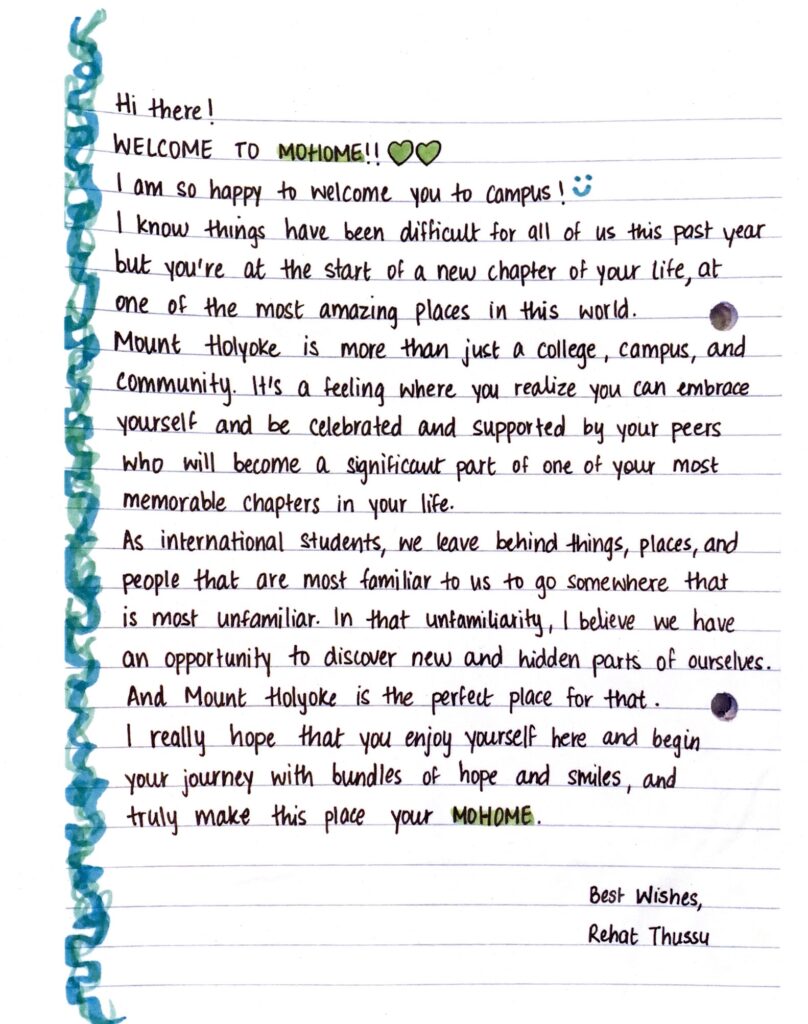 Hi there!
WELCOME TO MOHOME!! 💚💚
I am so happy to welcome you to campus!
I know things have been difficult for all of us this past year
but you're at the start of a new chapter of your life, at
one of the most amazing places in this world.
Mount Holyoke is more than just a college, campus, and
community. It's a feeling where you realize you can embrace
yourself and be celebrated and supported by your peers
who will become a significant part of one of your most
memorable chapters in your life.
As international students, we leave behind things, places, and
people that are most familiar to us to go somewhere that
is most unfamiliar. In that unfamiliarity, I believe we have
an opportunity to discover new and hidden parts of ourselves.
And Mount Holyoke is the perfect place for that.
I really hope that you enjoy yourself here and begin
your journey with bundles of hope and smiles, and
truly make this place your MOHOME.
Best Wishes,
Rehat Thussu